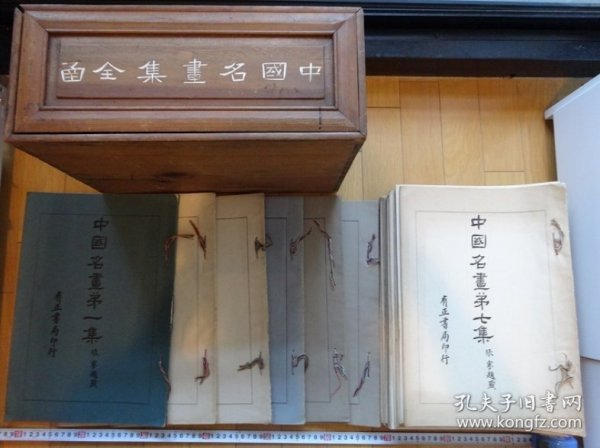 中國名畫集全函
中國名畫第一集
有正書局印行
中國名畫第七集
有正書局印行
孔夫子旧书网
www.kongfz.com